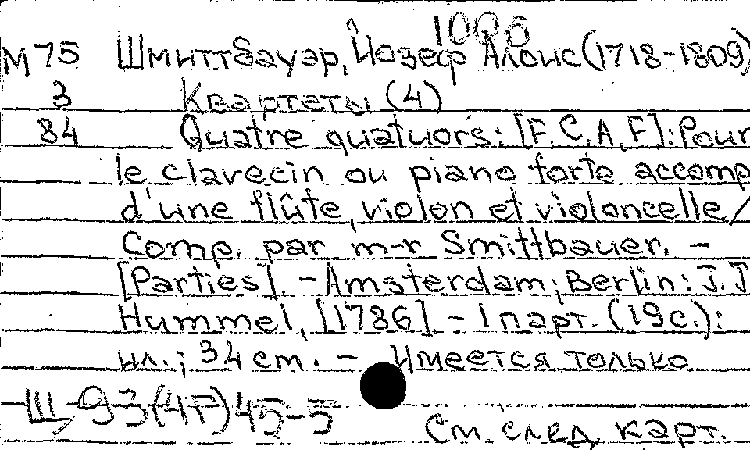 1006
М75 Шмиттбауэр, Йозеф Алоис (1718-1809)
3 Квартеты (4)
84 Quatre quatuors: [F, C, A, F]: Pour
le clavecin ou piano forte accomp
d'une flûte, violon et violoncelle /
Comp. par m-r Smittbauer. –
[Parties]. – Amsterdam; Berlin: J. J
Hummel, [1786]. – 1 парт. (19с.):
ил.; 34 см. – Имеется только
Ш 93(4Г)45-5
См. след. карт.